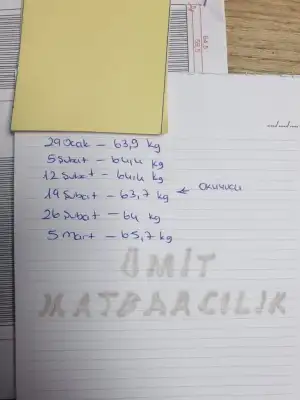 29 Ocak – 63,9 kg
5 Şubat – 64,4 kg
12 Şubat – 64,4 kg
19 Şubat – 63,7 kg ←
26 Şubat – 64 kg
5 Mart – 65,7 kg
ÜMİT
MATBAACILIK